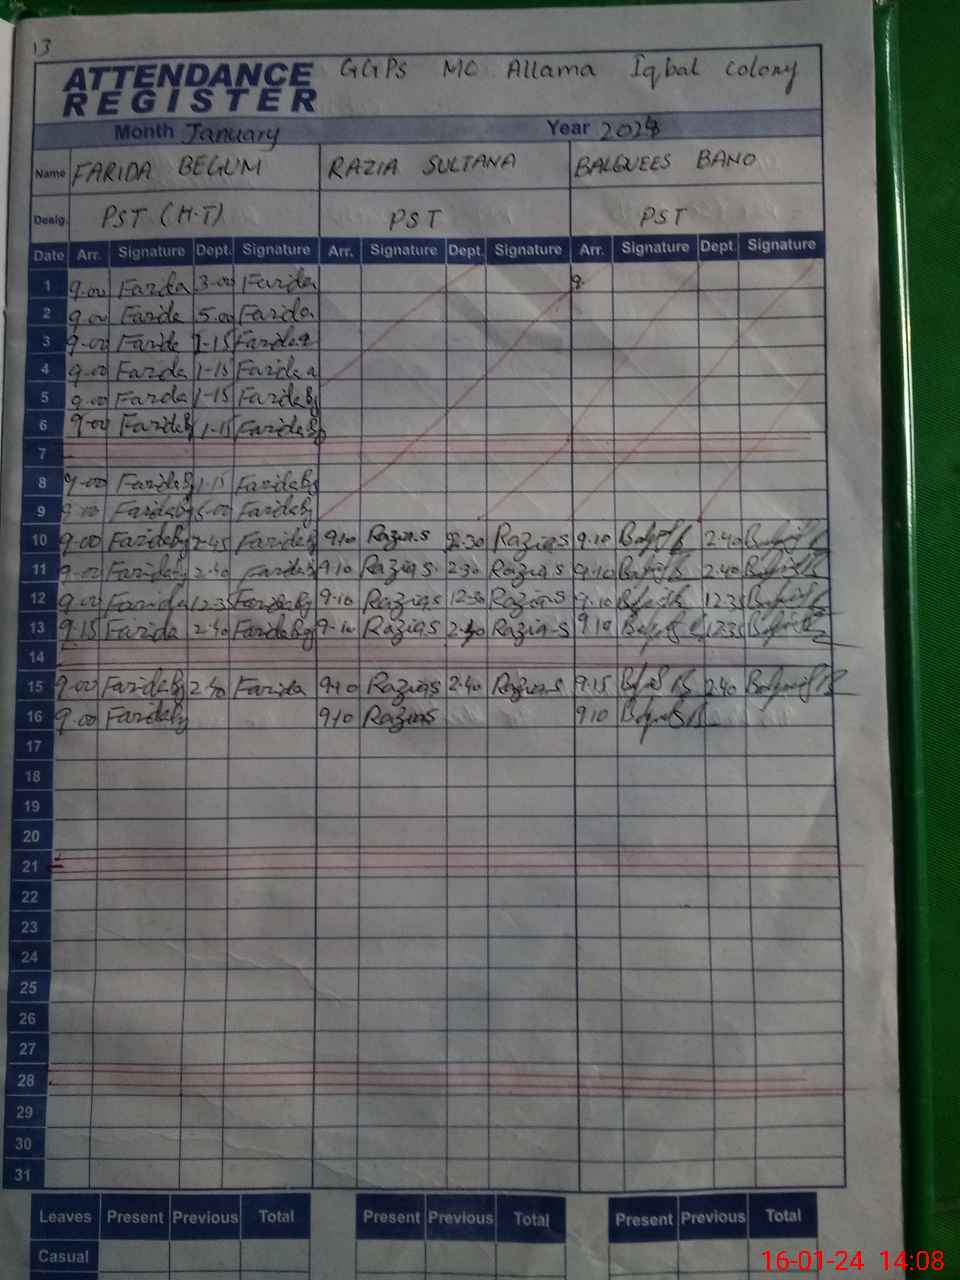 13
ATTENDANCE REGISTER GGPS MC Allama Iqbal Colony
Month January Year 2024
Name FARIDA BEGUM RAZIA SULTANA BALQUEES BANO
Desig. PST (H.T) PST PST
Date Arr. Signature Dept. Signature Arr. Signature Dept. Signature Arr. Signature Dept. Signature
1 9.00 Farida 3.00 Farida 9.
2 9.00 Farida 5.00 Farida
3 9.00 Farida 1-15 Farida
4 9.00 Farida 1-15 Farida
5 9.00 Farida 1-15 Farida Bg
6 9.00 Farida Bg 1-15 Farida Bg
7
8 9.00 Farida Bg 1-15 Farida Bg
9 9.00 Farida Bg Farida Bg
10 9.00 Farida Bg 2.45 Farida Bg 9.10 Razia.S 2.30 Razia S 9.10 2.40
11 9.00 Farida Bg 2.40 Farida Bg 9.10 Razia S 2.30 Razia S 9.10 2.40
12 9.00 Farida 12.35 Farida Bg 9-10 Razia S 12-30 Razia S 9.10 12.35
13 9.15 Farida 2.40 Farida Bg 9-10 Razia S 2.40 Razia-S 9.10 12.35
14
15 9.00 Farida Bg 2.40 Farida 9.10 Razia S 2.40 Razia S 9.15 2.40
16 9.00 Farida Bg 9.10 Razia S 9.10
17
18
19
20
21
22
23
24
25
26
27
28
29
30
31
Leaves Present Previous Total Present Previous Total Present Previous Total
Casual
16-01-24 14:08